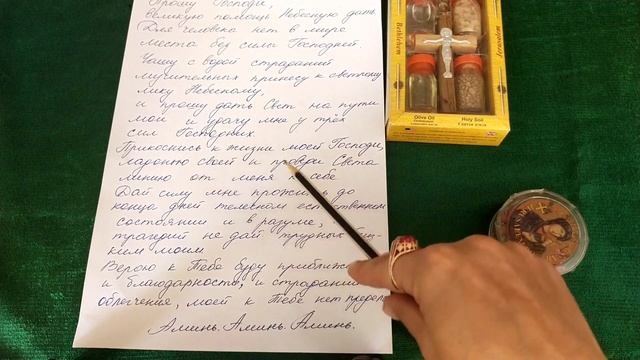 Прошу Господи,
великую помощь Небесную дать
Для человека нет в мире
места без силы Господней.
Чашу с водой страданий
мучительных принесу к светлому
лику Небесному,
и прошу дать Свет на пути
мои и удачу мне у трёх
сил Господних.
Прикоснись к жизни моей Господи,
ладонью своей и проведи Света
линию от меня к себе
Дай силу мне прожить до
конца дней телесном естественном
состоянии и в разуме,
трагедий не дай трудных
ким моим.
Верою к Тебе буду
и благодарность, и
облегчения, моей к Тебе нет
Аминь. Аминь. Аминь.
Bethlehem
Jerusalem
Olive Oil
Holy Soil